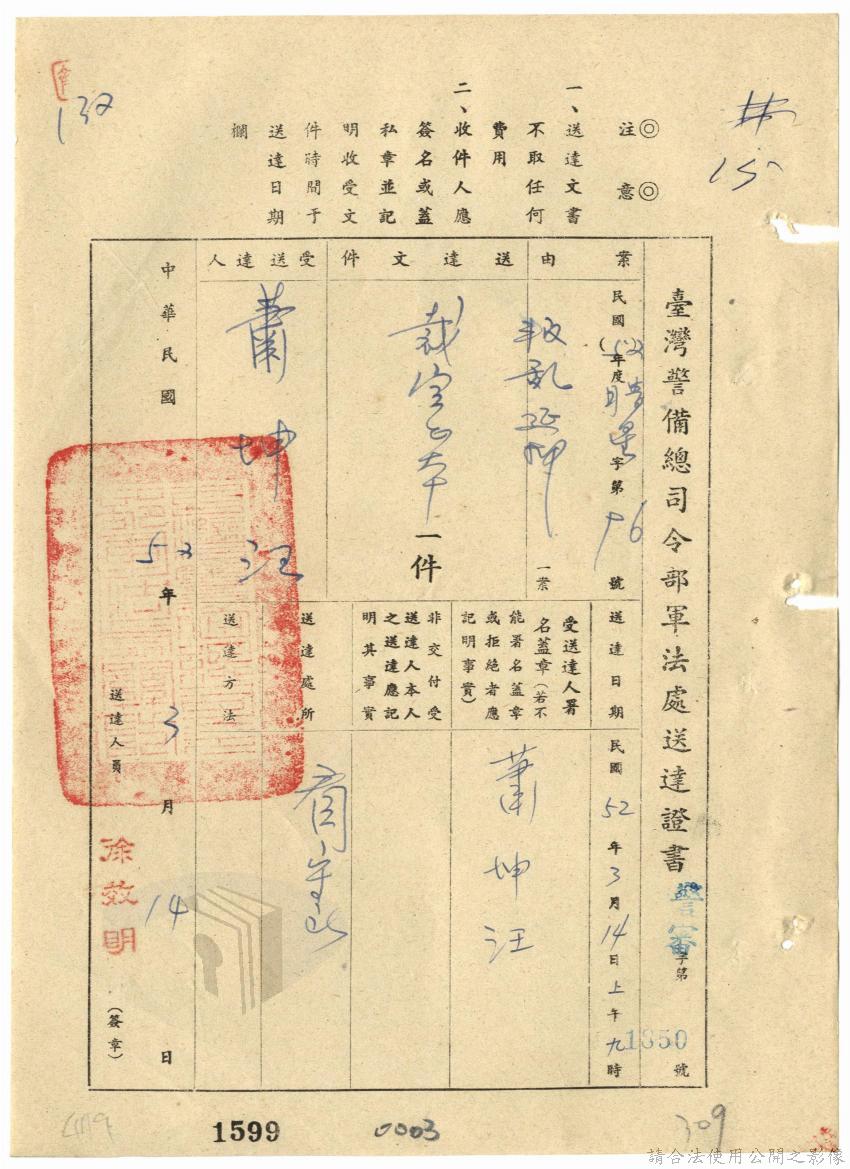 133
◎注意◎
一、送達文書
不取任何
費用
二、收件人應
簽名或蓋
私章並記
明收受文
件時間于
送達日期
欄
臺灣警備總司令部軍法處送達證書
警審字第1350號
案由
民國(52)年度 字第 號
叛亂 一案
送達文件
裁定正本一件
受送達人
蕭坤汪
送達日期
民國52年3月14日上午九時
受送達人署
名蓋章(若不
能署名蓋章
或拒絕者應
記明事實)
蕭坤汪
非交付受
送達人本人
之送達應記
明其事實
送達處所
送達方法
中華民國52年3月14日
送達人員
徐效明
(簽章)
1599
0003
309
請合法使用公開之影像